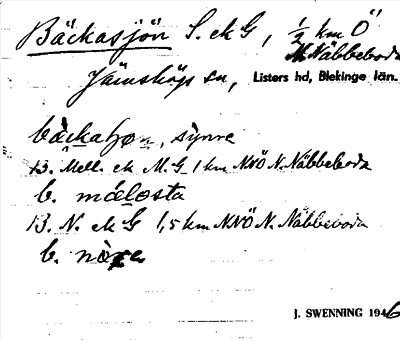 Bäckasjön S. ek G, ½ km Ö
N. Näbbeboda
Jämshögs sn, Listers hd, Blekinge län.
synre
B. Mell. ek M. G 1 km NNÖ N. Näbbeboda
b. 
B. N. ek G 1,5 km NNÖ N. Näbbeboda
b. 
J. SWENNING 1946